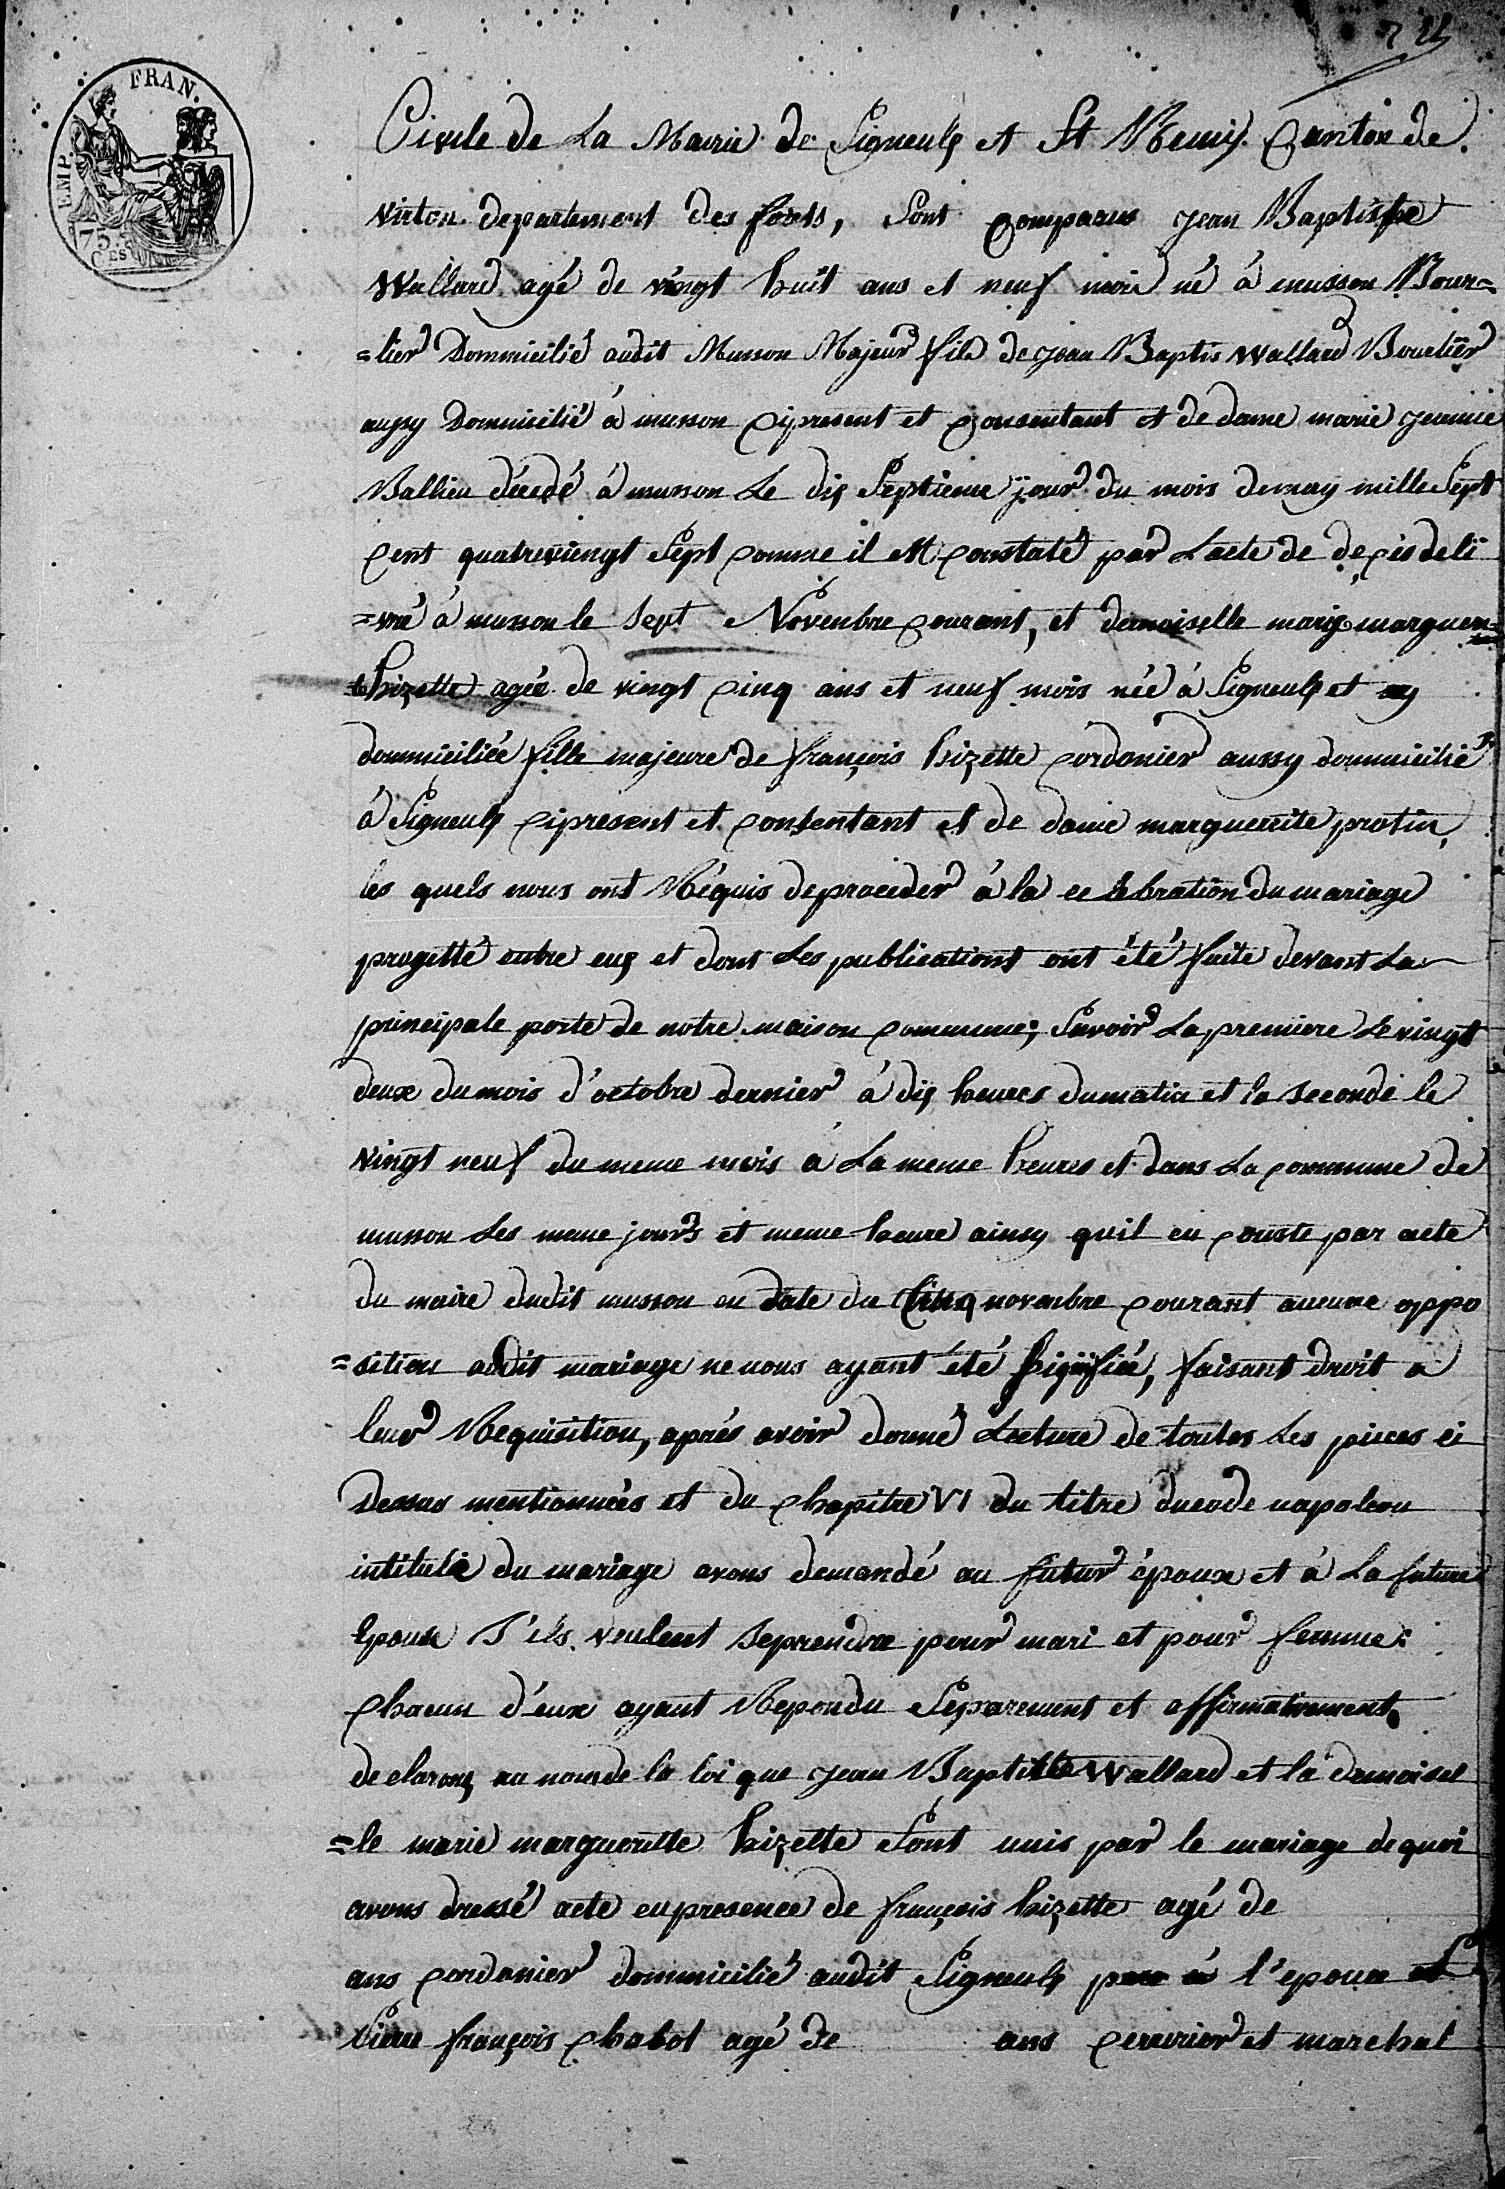 EMP. FRAN.
75.
Civile de La Mairie de Signeulx et St Remis. Canton de.
virton. departement des forets, Sont comparus jean Baptiste
Wallard agé de vingt huit ans et neuf mois né à musson Bour=
=lier Dommicilié audit Musson Majeur fils de jean Baptis wallard Bourlier
aussy Dommicilié à musson cipresent et consentant et de dame marie jeanne
Vallieu décedé à musson Le dix Septieme jour du mois de may mille Sept
cent quatrevingt Sept comme il est constaté par Lacte de decés deli
=vré à musson le Sept Novenbre courant, et demoiselle marie margueri=
te hizette agée de vingt cinq ans et neuf mois née à Signeulx et y
dommiciliée fille majeure de françois hizette cordonier aussy dommicilié
à Signeulx cipresent et consentant et de dame marguerite protin,
les quels nous ont Réquis deproceder à la celebration du mariage
progetté entre eux et dont Les publications ont été faite devant La
principale porte de notre maison commune; Savoir La premiere Le vingt
deux du mois d'octobre dernier à dix heures dumatin et la seconde le
vingt neuf du meme mois à La meme heures et dans La commune de
musson Les meme jours et meme heure ainsy quil en conste par acte
du maire dudit musson en date du Cinq novenbre courant aucune oppo
=sition audit mariage ne nous ayant été Signifiée, faisant droit a
leur Requisition, aprés avoir donné Lecture de toutes Les pieces ci
Dessus mentionnées et du chapitre VI du titre ducode napoleon
intitulé du mariage avons demandé au futur époux et à La future
Epouse S'ils veulent seprendre pour mari et pour femme:
chacun d'eux ayant Repondu Separement et affirmativement,
declarons au nomde la loi que jean Baptiste Wallard et la demoisel
=le marie marguerite hizette Sont unis par le mariage de quoi
avons dressé acte enpresence de françois hizette agé de
ans cordonier dommicilié audit Signeulx l'epouse et
Pierre françois chabot agé de ans et marchal